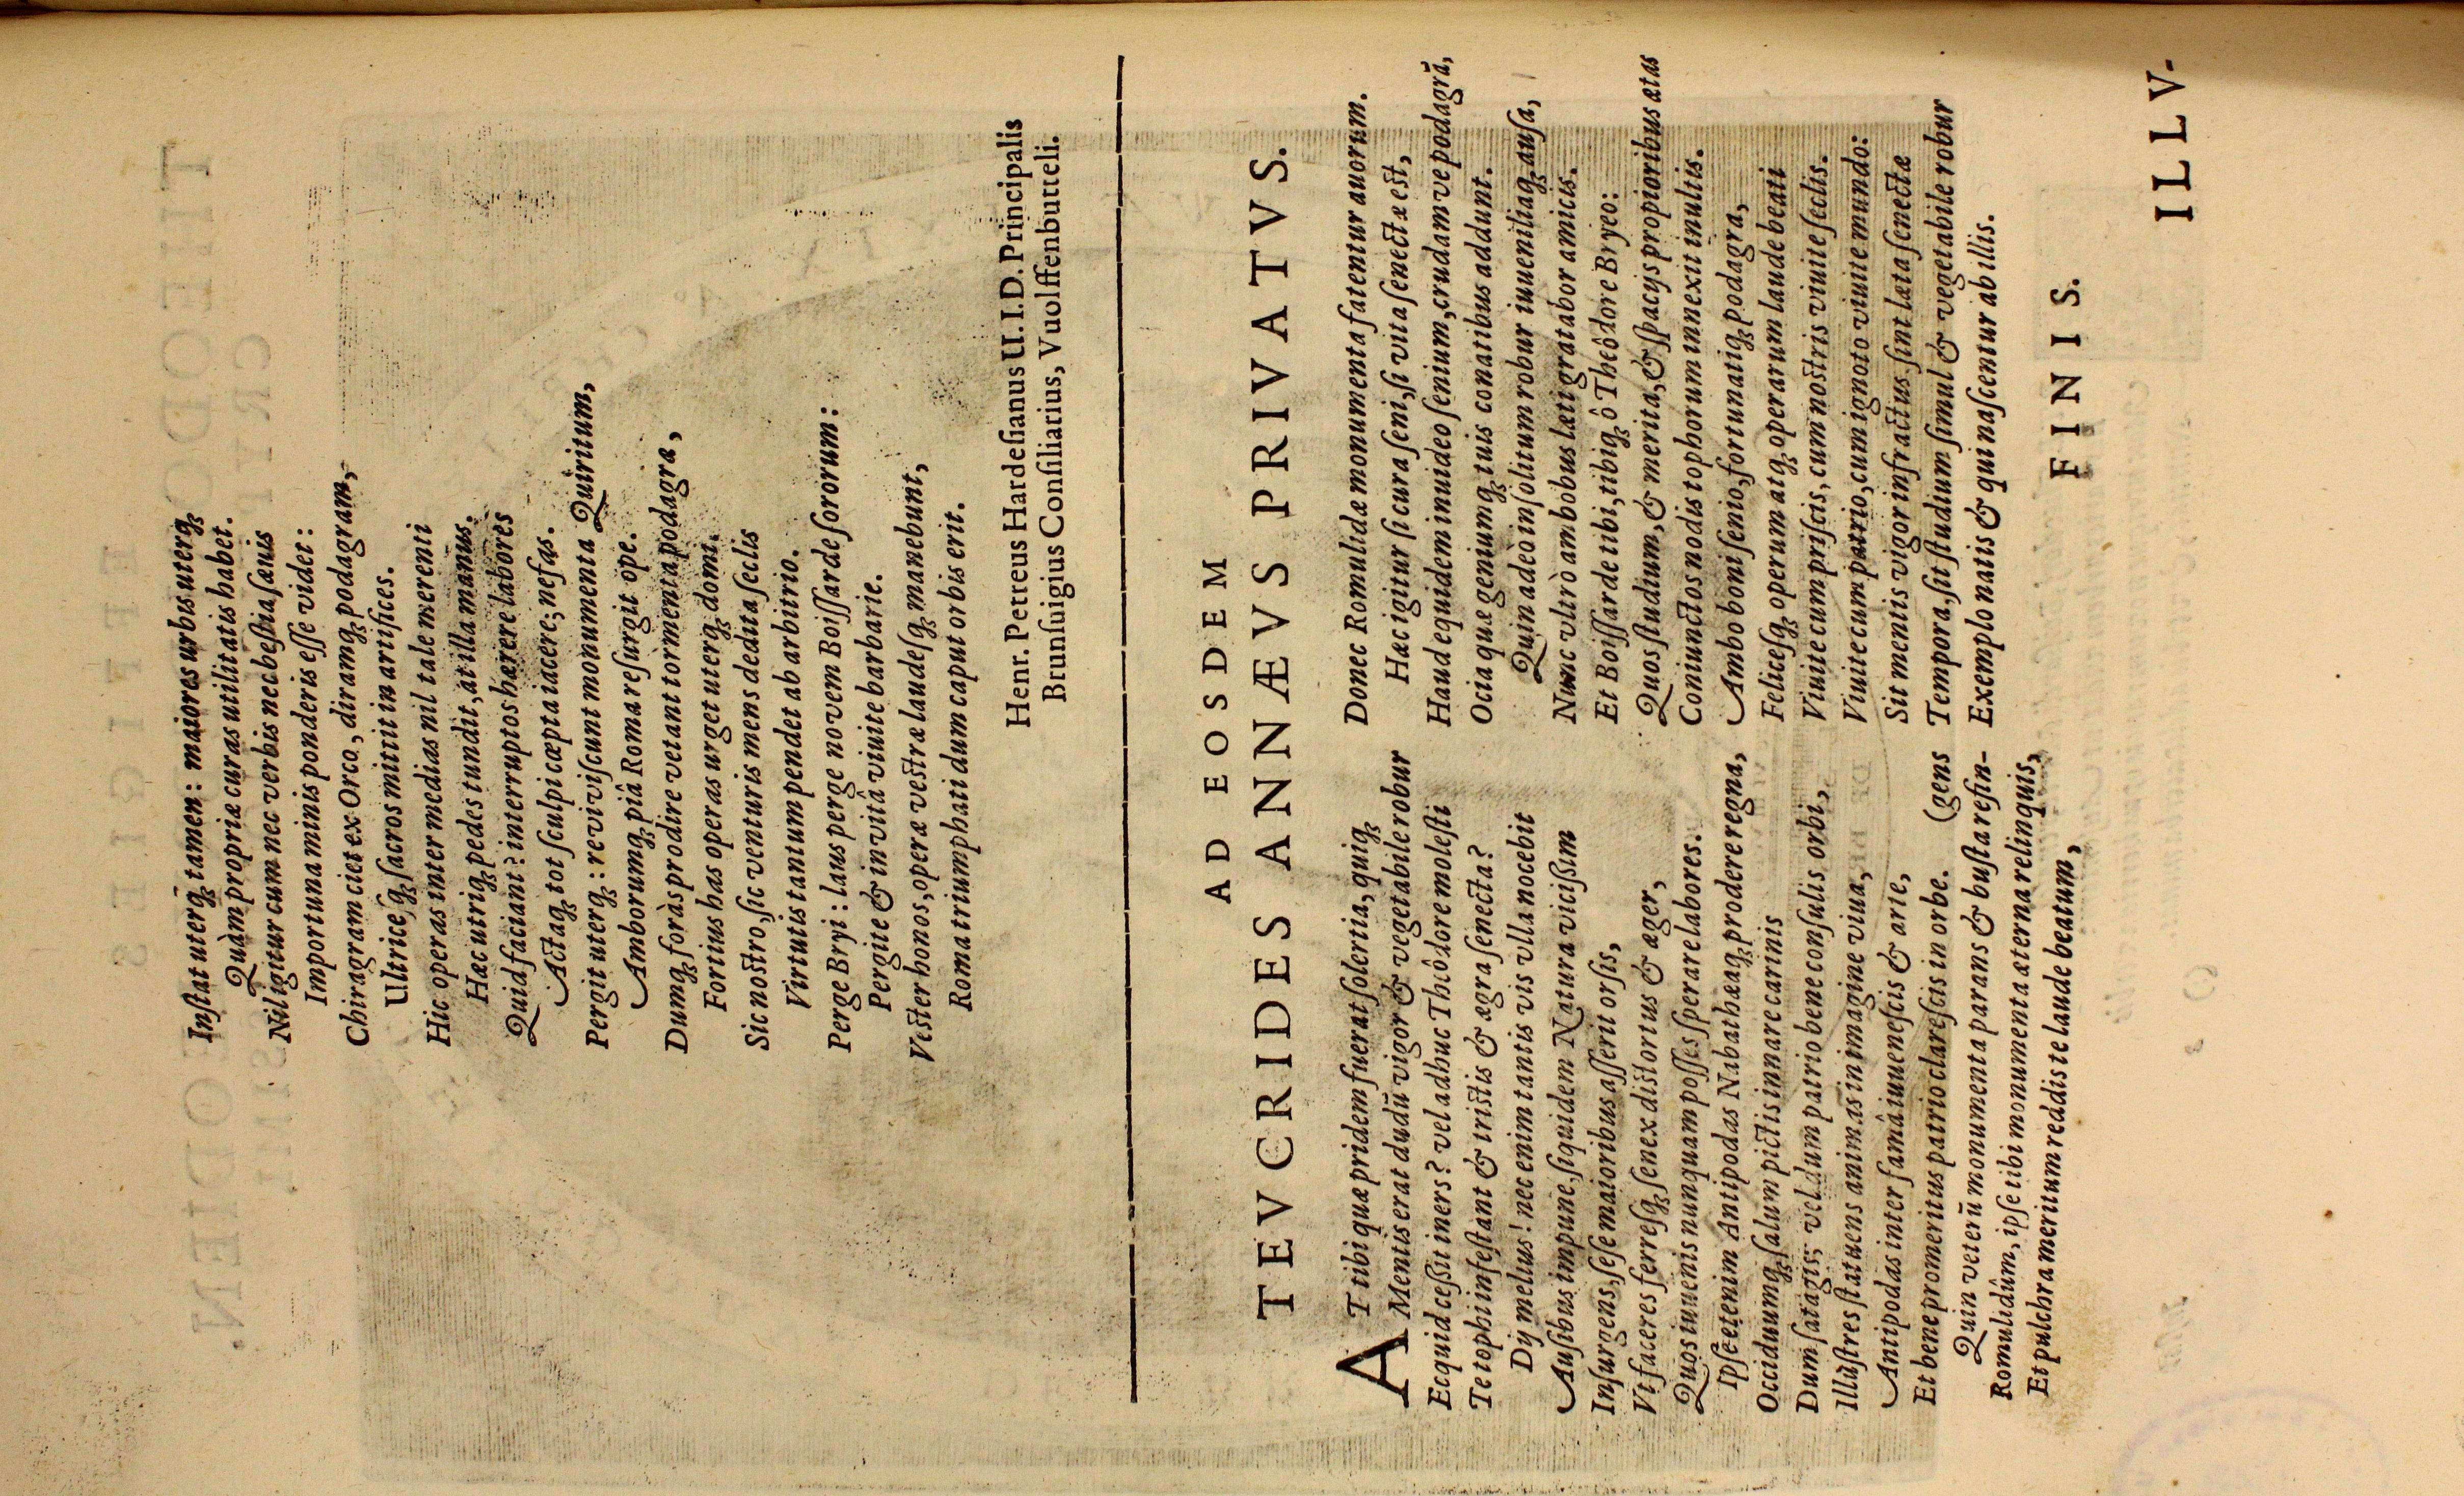 Inſtat uterq́ꝫ tamen: maiores urbis uterqꝫ
Quàm propriæ curas utilitatis habet.
Nil igitur cum nec verbis nec beſtia ſævis
Importuna minis ponderis eſſe videt:
Chiragram ciet ex Orco, diramqꝫ podagram,
Ultriceſqꝫ ſacros mittit in artifices.
Hic operas inter medias nil tale merenti
Hæc utriqꝫ pedes tundit, at illa manus.
Quid faciant? interruptos hærere labores
Actaqꝫ tot ſculpi cœpta iacere; nefas.
Pergit uterqꝫ: reviviſcunt monumenta Quiritum,
Amborumqꝫ piâ Roma reſurgit ope.
Dumqꝫ foràs prodire vetant tormenta podagræ,
Fortius has operas urget uterqꝫ domi.
Sic noſtro, ſic venturis mens dedita ſeclis
Virtutis tantum pendet ab arbitrio.
Perge Bryi: laus perge novem Boiſſarde ſororum:
Pergite & invitâ viuite barbarie.
Veſter honos, operæ veſtræ laudeſqꝫ manebunt,
Roma triumphati dum caput orbis erit.
Henr. Petreus Hardeſianus U. I. D. Principalis
Brunſuigius Conſiliarius, Vuolffenbutteli.
AD EOSDEM
TEVCRIDES ANNÆVS PRIVATVS.
AT tibi quæ pridem fuerat ſolertia, quiqꝫ
Mentis erat dudū vigor & vegetabile robur
Ecquid ceßit iners? vel adhuc Thêôdore moleſti
Te tophi infeſtant & triſtis & ægra ſenecta?
Dij melius! nec enim tantis vis vlla nocebit
Auſibus impune, ſiquidem Natura vicißim
Inſurgens, ſeſe maioribus aſſerit orſis,
Vt faceres ferreſqꝫ ſenex diſtortus & æger,
Quos iuuenis nunquam poſſes ſperare labores.
Ipſe etenim Antipodas Nabathæaqꝫ prodere regna,
Occiduumqꝫ ſalum pictis innare carinis
Dum ſatagis; vel dum patrio bene conſulis orbi,
Illuſtres ſtatuens animas in imagine viua,
Antipodas inter famâ iuueneſcis & arte,
Et bene promeritus patrio clareſcis in orbe. (gens
Quin veterū monumenta parans & buſta refin-
Romulidûm, ipſe tibi monumenta æterna relinquis,
Et pulchra meritum reddis te laude beatum,
Donec Romulidæ monumenta fatentur auorum.
Hæc igitur ſi cura ſeni, ſi vita ſenectæ eſt,
Haud equidem inuideo ſenium, crudamve podagrā,
Ocia quæ geniumqꝫ tuis conatibus addunt.
Quin adeò inſolitum robur iuueniliaqꝫ auſa,
Nunc vltrò ambobus læti gratabor amicis.
Et Boiſſarde tibi, tibiqꝫ ô Theôdore Bryeo:
Quos ſtudium, & merita, & ſpacijs propioribus ætas
Coniunctos nodis tophorum innexit inultis.
Ambo boni ſenio, fortunatiqꝫ podagra,
Feliceſqꝫ operum atqꝫ operarum laude beati
Viuite cum priſcis, cum noſtris viuite ſeclis.
Viuite cum patrio, cum ignoto viuite mundo:
Sit mentis vigor infractus ſint læta ſenectæ
Tempora, ſit ſtudium ſimul & vegetabile robur
Exemplo natis & qui naſcentur ab illis.
FINIS.
ILLV-